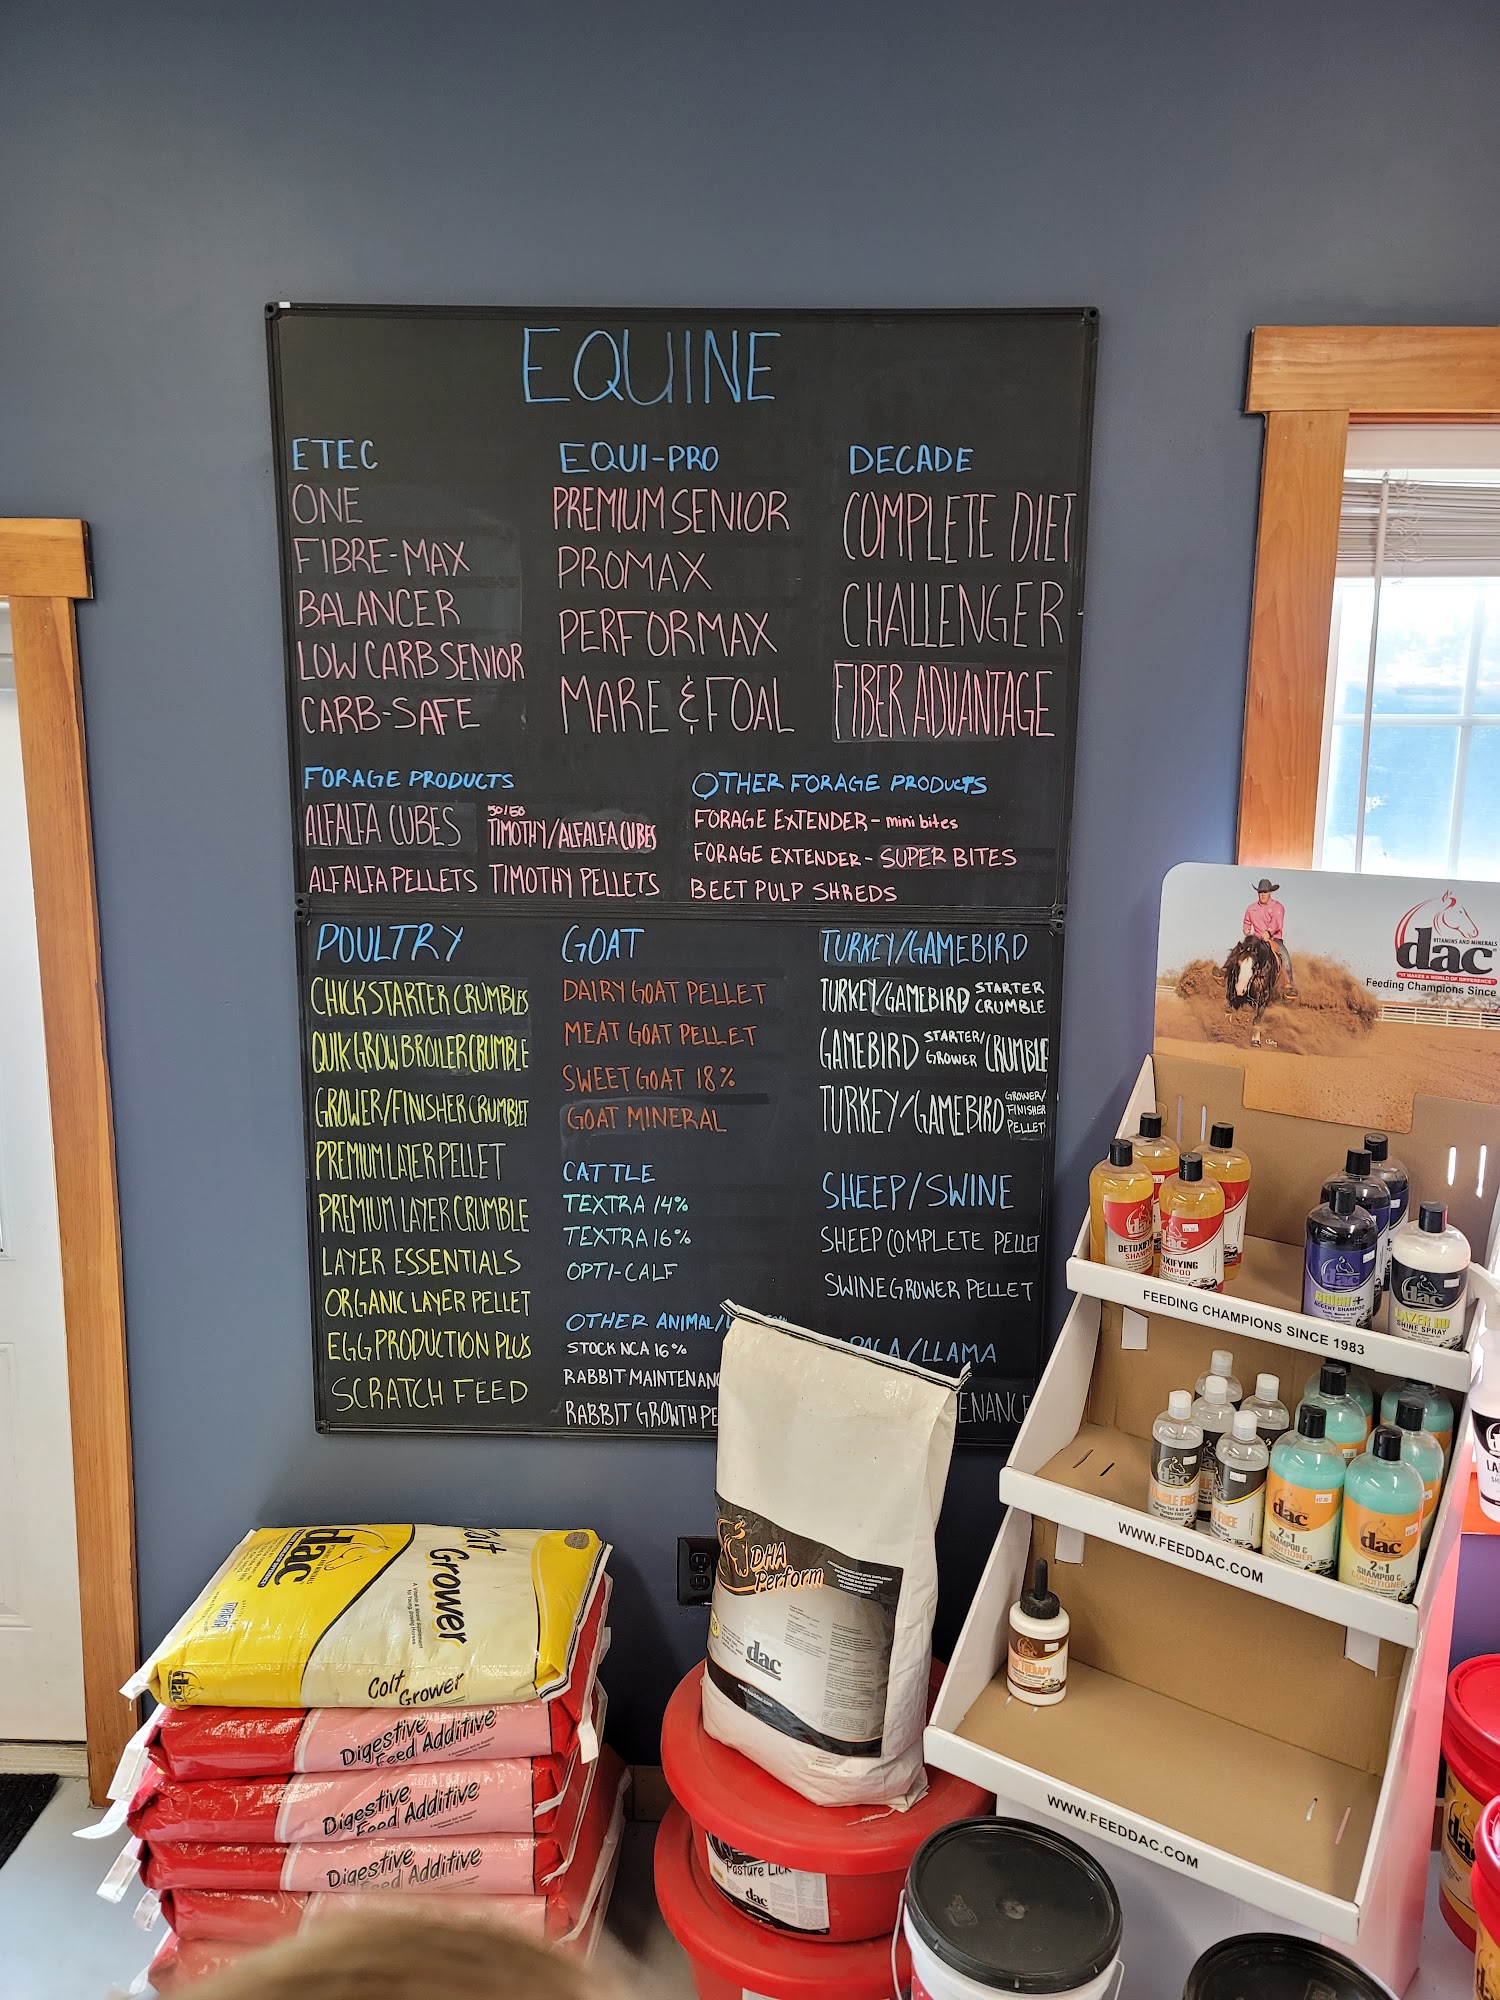 EQUINE
ETEC
ONE
FIBRE-MAX
BALANCER
LOW CARB SENIOR
CARB-SAFE
EQUI-PRO
PREMIUM SENIOR
PROMAX
PERFORMAX
MARE & FOAL
DECADE
COMPLETE DIET
CHALLENGER
FIBER ADVANTAGE
FORAGE PRODUCTS
ALFALFA CUBES
50/50
TIMOTHY/ALFALFA CUBES
ALFALFA PELLETS TIMOTHY PELLETS
OTHER FORAGE PRODUCTS
FORAGE EXTENDER - mini bites
FORAGE EXTENDER - SUPER BITES
BEET PULP SHREDS
POULTRY
CHICK STARTER CRUMBLES
QUIK GROW BROILER CRUMBLE
GROWER/FINISHER CRUMBLET
PREMIUM LAYER PELLET
PREMIUM LAYER CRUMBLE
LAYER ESSENTIALS
ORGANIC LAYER PELLET
EGG PRODUCTION PLUS
SCRATCH FEED
GOAT
DAIRY GOAT PELLET
MEAT GOAT PELLET
SWEET GOAT 18%
GOAT MINERAL
CATTLE
TEXTRA 14%
TEXTRA 16%
OPTI-CALF
OTHER ANIMAL/
STOCK NCA 16%
RABBIT MAINTENAN
RABBIT GROWTH PE
TURKEY/GAMEBIRD
TURKEY/GAMEBIRD STARTER CRUMBLE
GAMEBIRD STARTER/GROWER CRUMBLE
TURKEY/GAMEBIRD GROWER/FINISHER PELLET
SHEEP/SWINE
SHEEP COMPLETE PELLET
SWINE GROWER PELLET
PACA/LLAMA
ENANCE
dac
VITAMINS AND MINERALS
"IT MAKES A WORLD OF DIFFERENCE"
Feeding Champions Since
dac
DETOXIFY
SHAM
dac
OXIFYING
SHAMPOO
dac
BRIGH+
ACCENT SHAMPOO
dac
LAZER HD
SHINE SPRAY
FEEDING CHAMPIONS SINCE 1983
dac
FREE
FREE
dac
2 in 1
SHAMPOO &
CONDITIONER
dac
2 in 1
SHAMPOO &
CONDITIONER
WWW.FEEDDAC.COM
THERAPY
WWW.FEEDDAC.COM
dac
Colt
Grower
Colt
Grower
dac
Digestive
Feed Additive
Digestive
Feed Additive
Digestive
Feed Additive
DHA
Perform
dac
Pasture Lick
dac